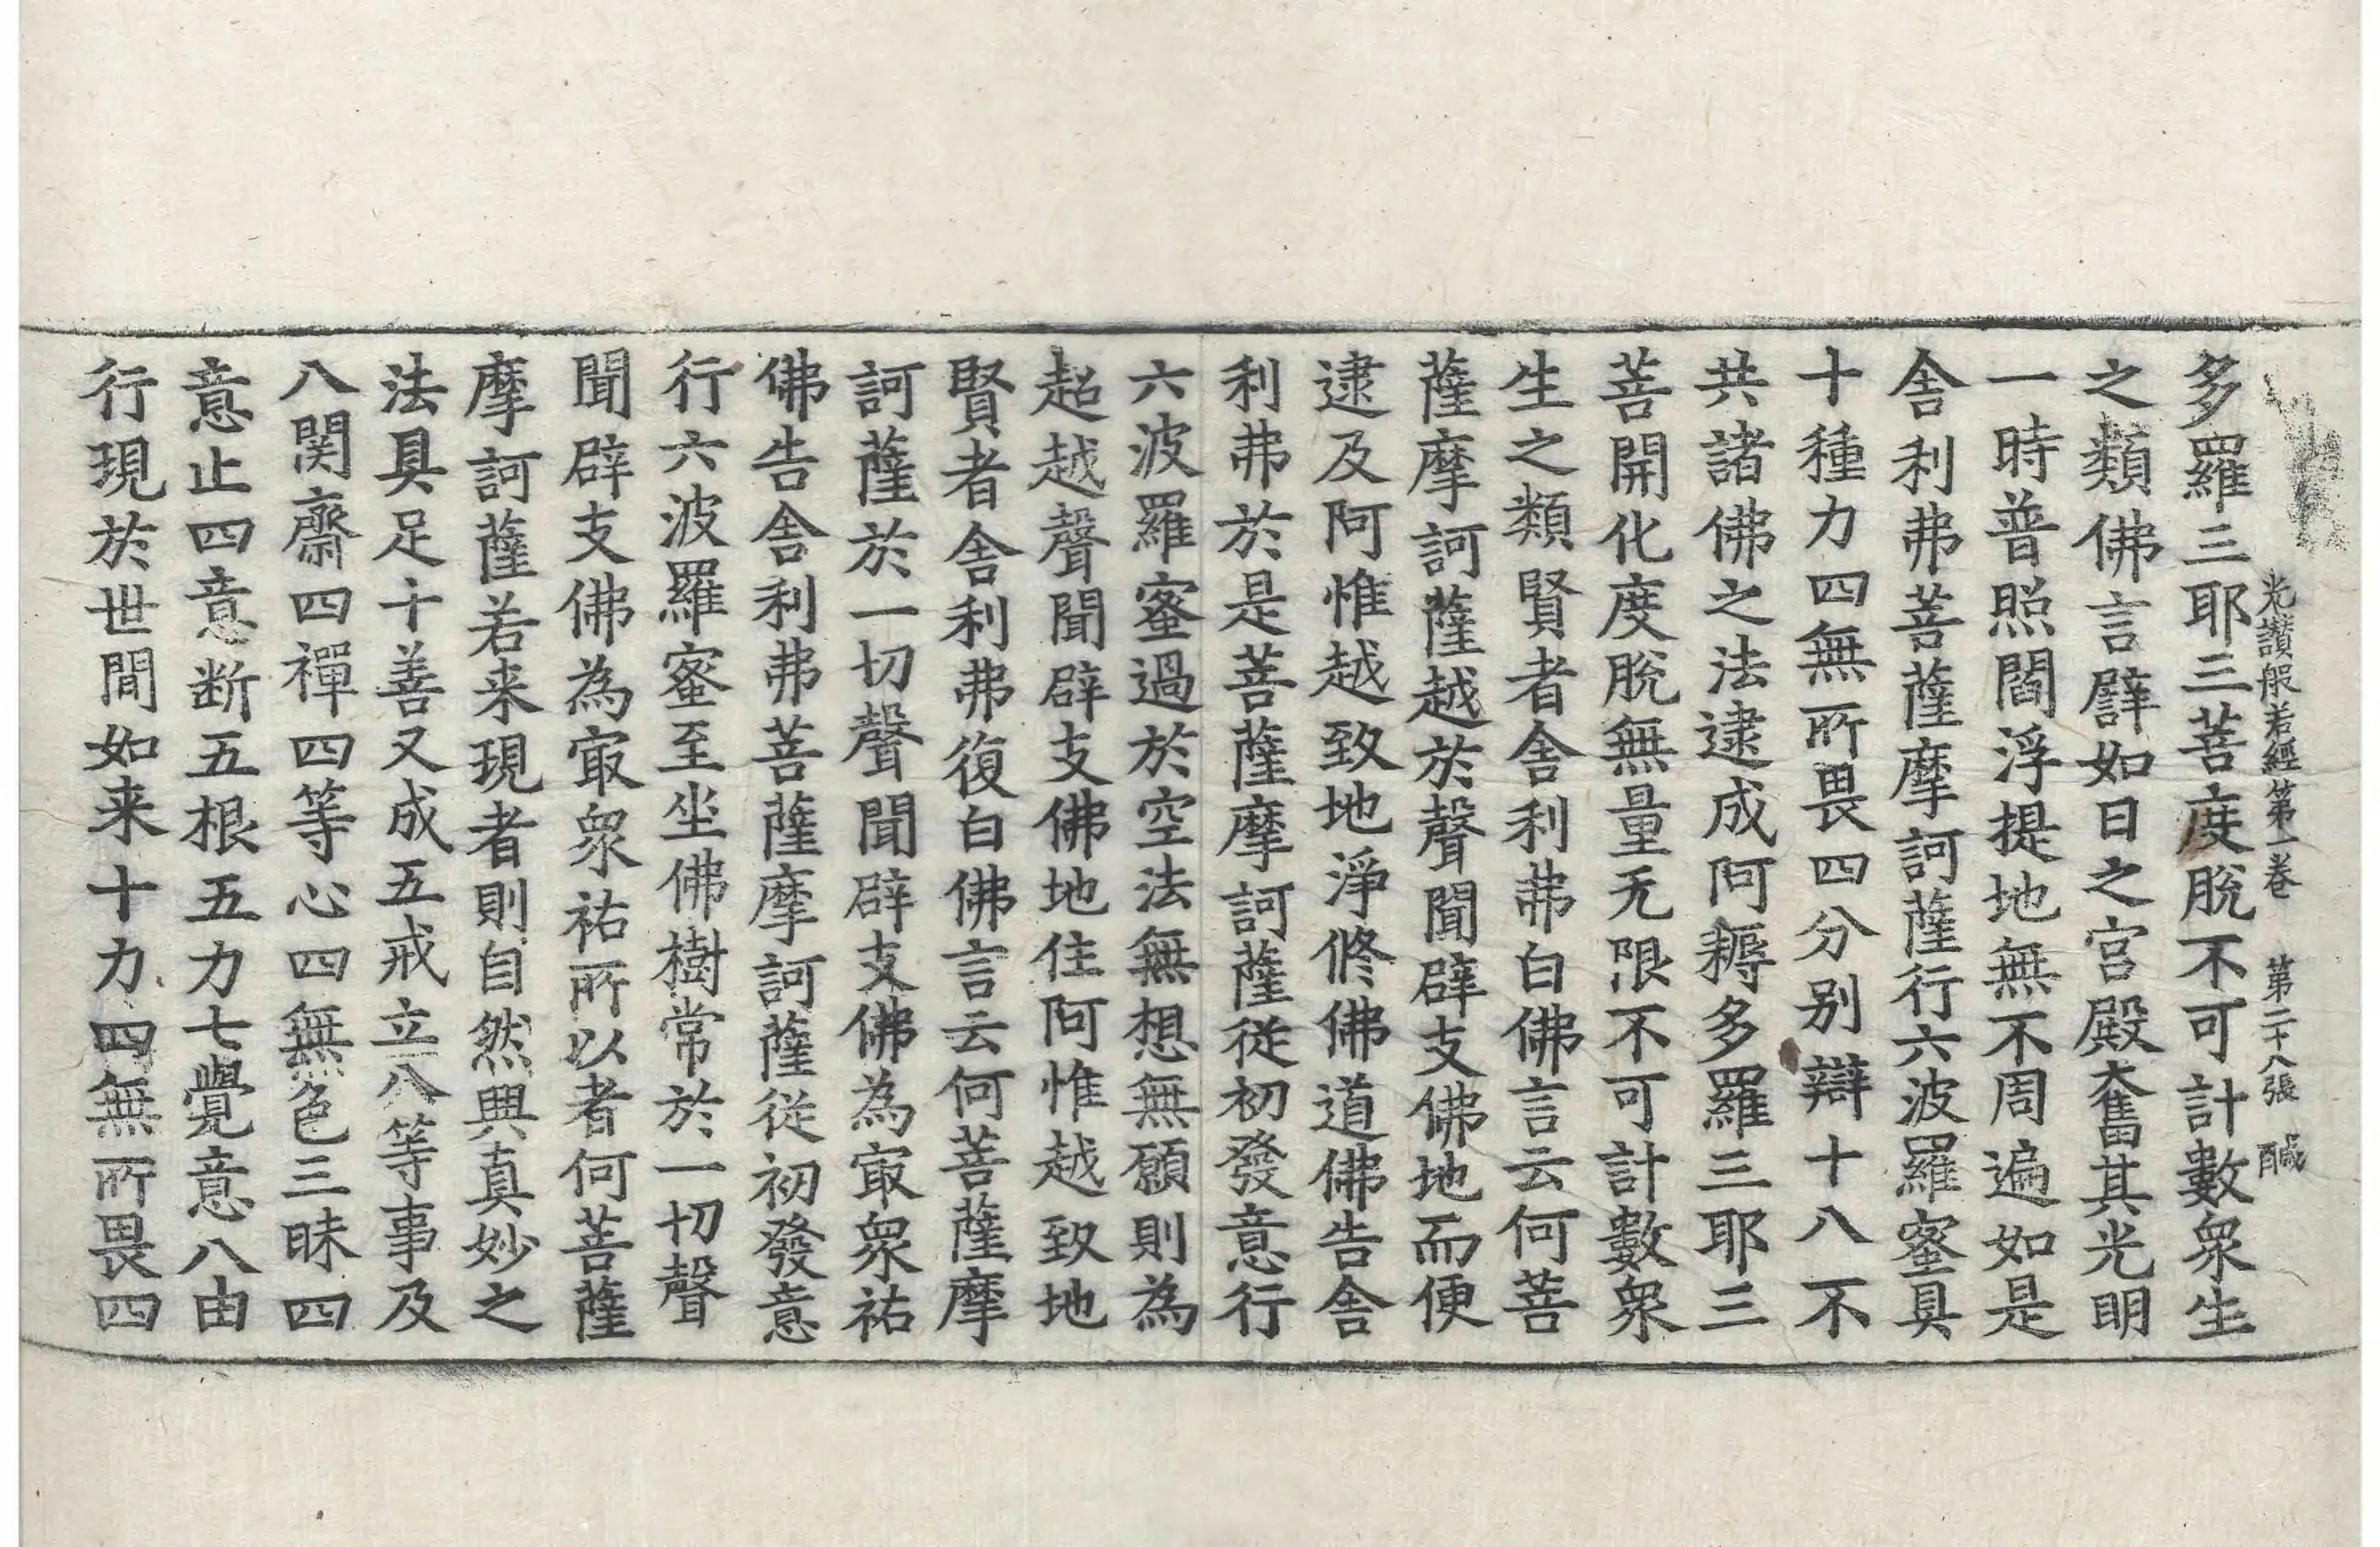 光讚般若經第一卷 第二十八張 醎
多羅三耶三菩度脫不可計數衆生
之類佛言譬如日之宮殿奮其光明
一時普照閻浮提地無不周遍如是
舎利弗菩薩摩訶薩行六波羅蜜具
十種力四無所畏四分别辯十八不
共諸佛之法逮成阿耨多羅三耶三
菩開化度脫無量无限不可計數衆
生之類賢者舎利弗白佛言云何菩
薩摩訶薩越於聲聞辟支佛地而便
逮及阿惟越致地淨修佛道佛告舎
利弗於是菩薩摩訶薩從初發意行
六波羅蜜過於空法無想無願則為
超越聲聞辟支佛地住阿惟越致地
賢者舎利弗復白佛言云何菩薩摩
訶薩於一切聲聞辟支佛為㝡衆祐
佛告舎利弗菩薩摩訶薩從初發意
行六波羅蜜至坐佛樹常於一切聲
聞辟支佛為㝡衆祐所以者何菩薩
摩訶薩若来現者則自然興真妙之
法具足十善又成五戒立八等事及
八関齋四禪四等心四無色三昧四
意止四意断五根五力七覺意八由
行現於世間如来十力四無所畏四